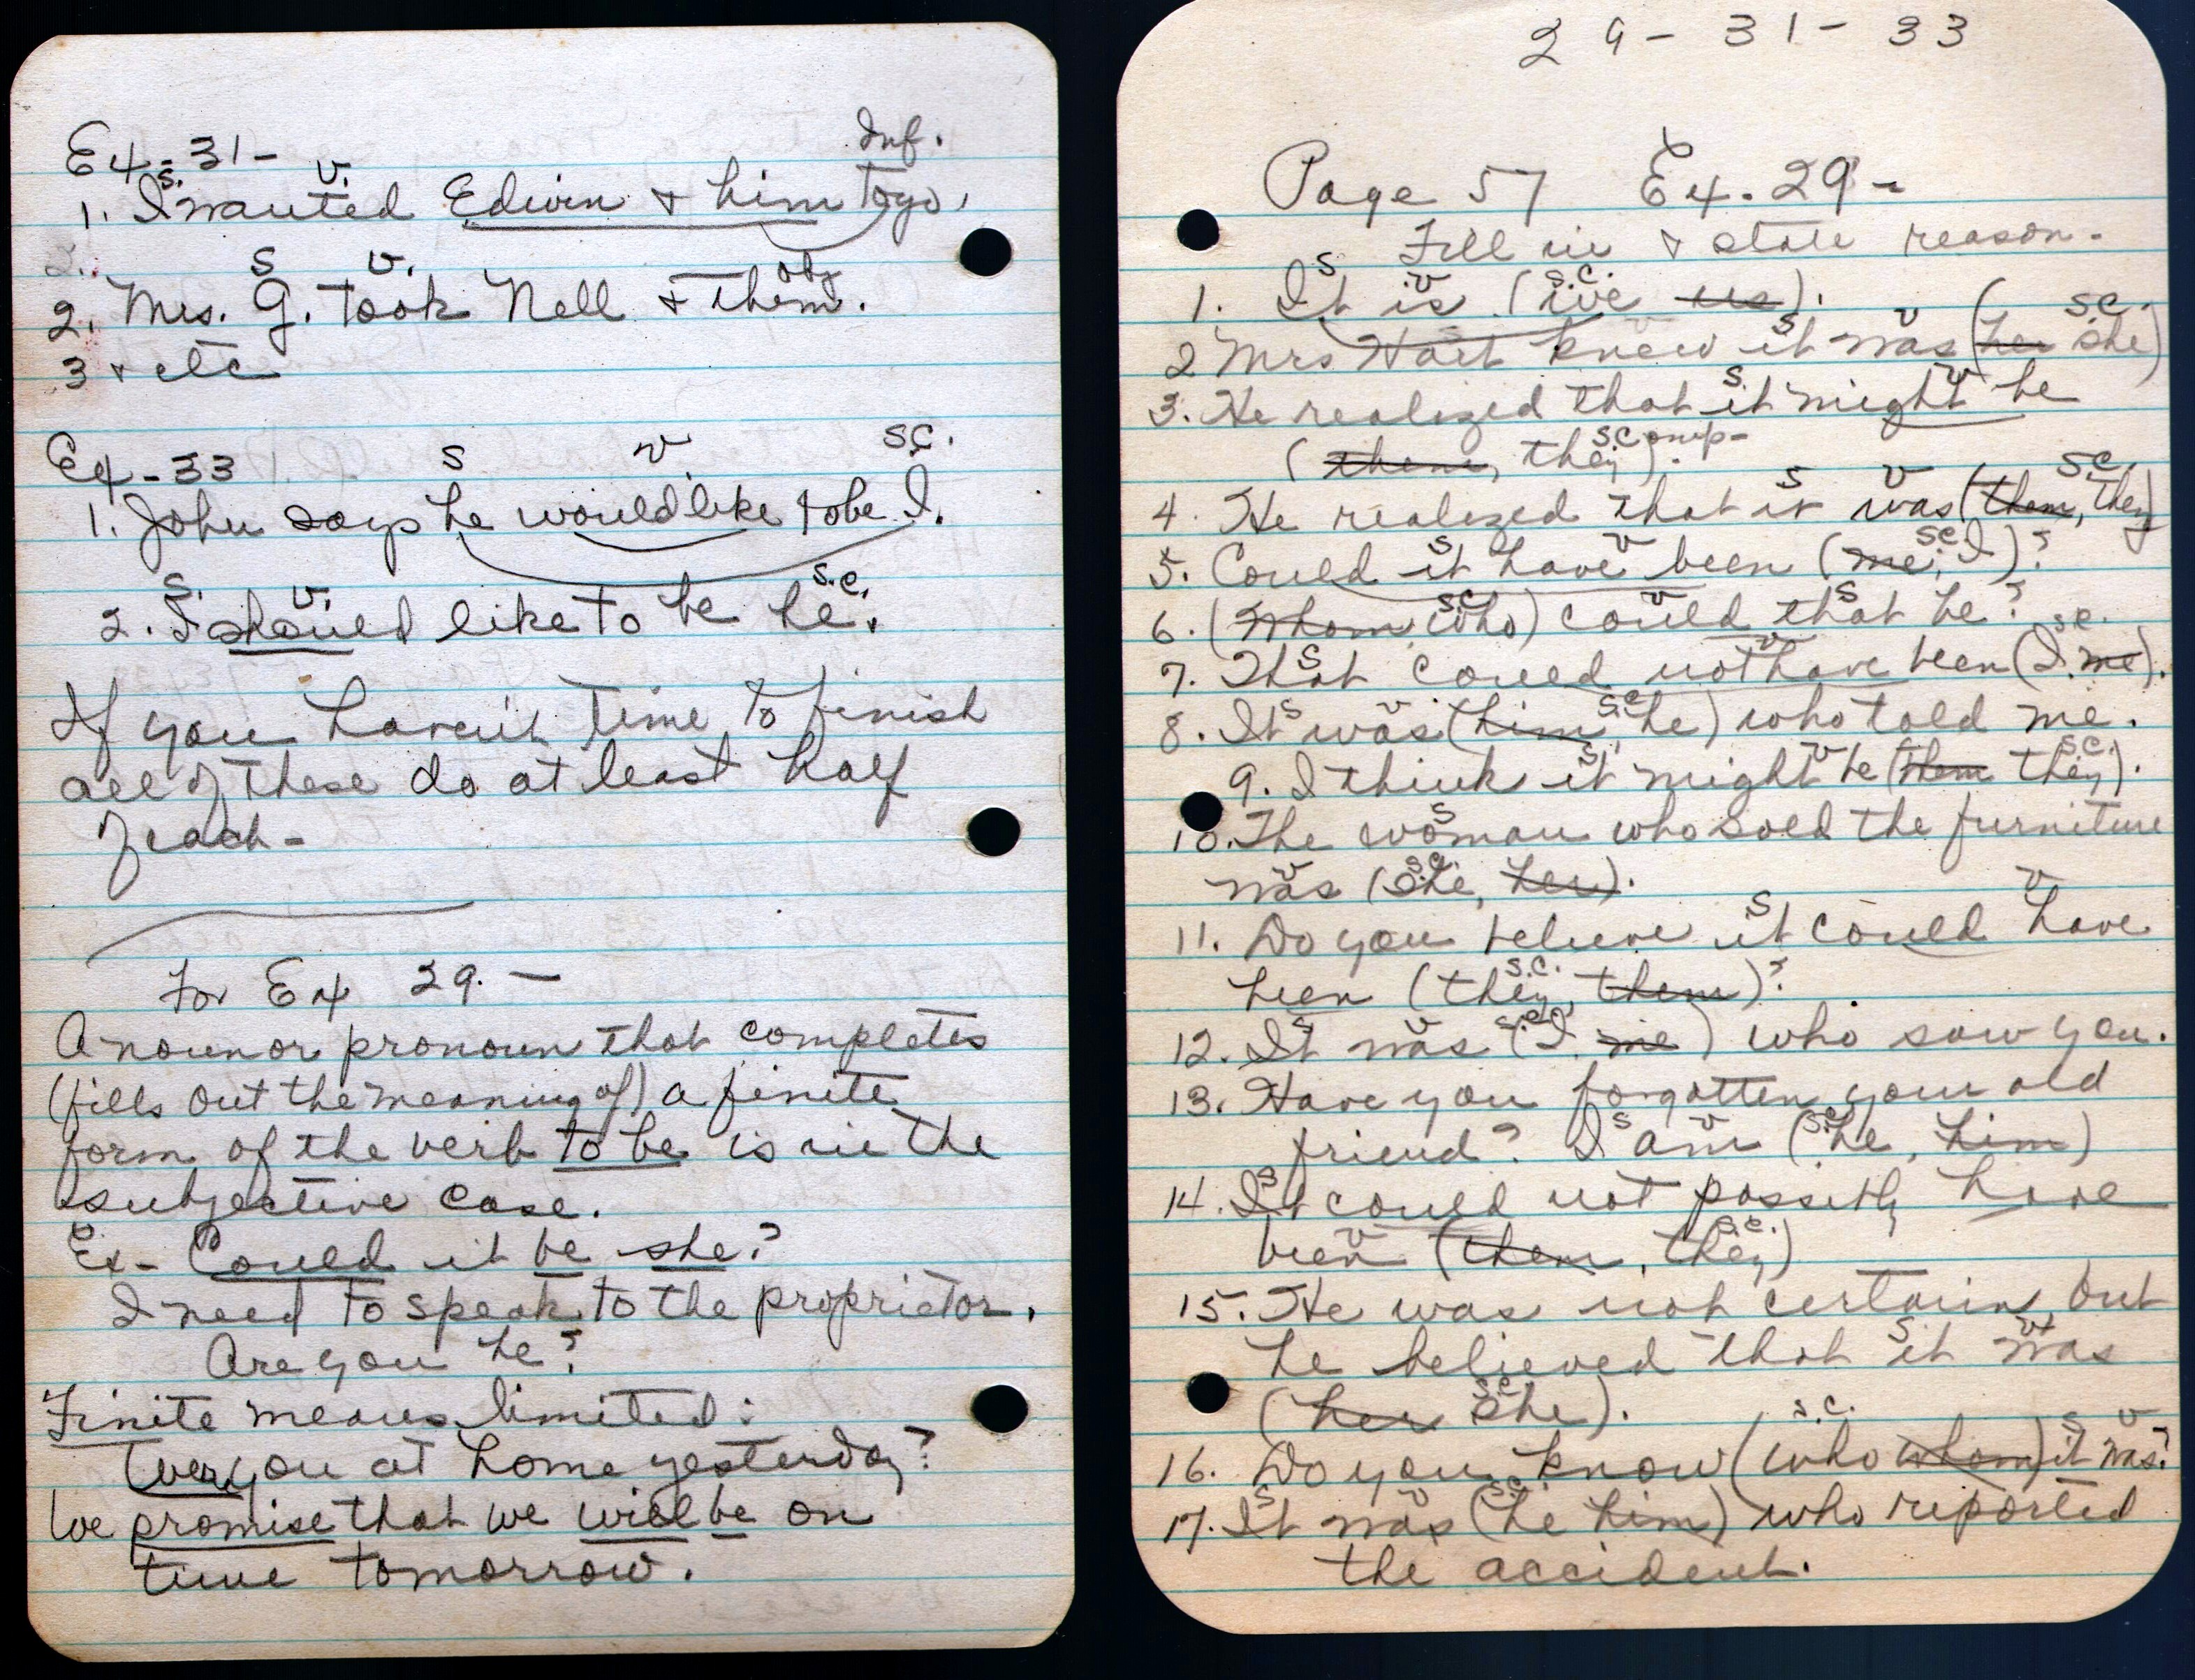 Inf.
Ex-31-
s. v.
1. I wanted Edwin & him to go.
s v. obj
2. Mrs. G. took Nell & them.
3 & etc
Ex-33 s v. s.c.
1. John says he would like to be I.
s. v. s.c.
2. I should like to be he.
If you haven't time to finish
all of these do at least half
of each-
For Ex 29.-
A noun or pronoun that completes
(fills out the meaning of) a finite
form of the verb to be is in the
subjective case.
Ex- Could it be she?
I need to speak to the proprietor.
Are you he?
Finite means limited:
Were you at home yesterday?
We promise that we will be on
time tomorrow.
29-31-33
Page 57 Ex.29-
Fill in & state reason.
s v s.c.
1. It is (we us).
s v s.c.
2 Mrs Hart knew it was (her she)
s. v
3. He realized that it might be
s.comp-
(them, they).
s v s.c.
4. He realized that it was (them, they)
s v s.c.
5. Could it have been (me, I)?
s.c. v s
6. (Whom, who) could that be?
s v s.c.
7. That could not have been (I, me).
s v s.c.
8. It was (him, he) who told me.
s v s.c.
9. I think it might be (them they).
s
10. The woman who sold the furniture
v s.c.
was (she, her).
s v
11. Do you believe it could have
s.c.
been (they, them)?
s v s.c.
12. It was (I, me) who saw you.
13. Have you forgotten your old
s v s.c.
friend? I am (he, him)
s
14. It could not possibly have
v s.c.
been (them, they)
15. He was not certain, but
s v
he believed that it was
s.c.
(her she).
s.c. s v
16. Do you know (who whom) it was?
s v s.c.
17. It was (he him) who reported
the accident.